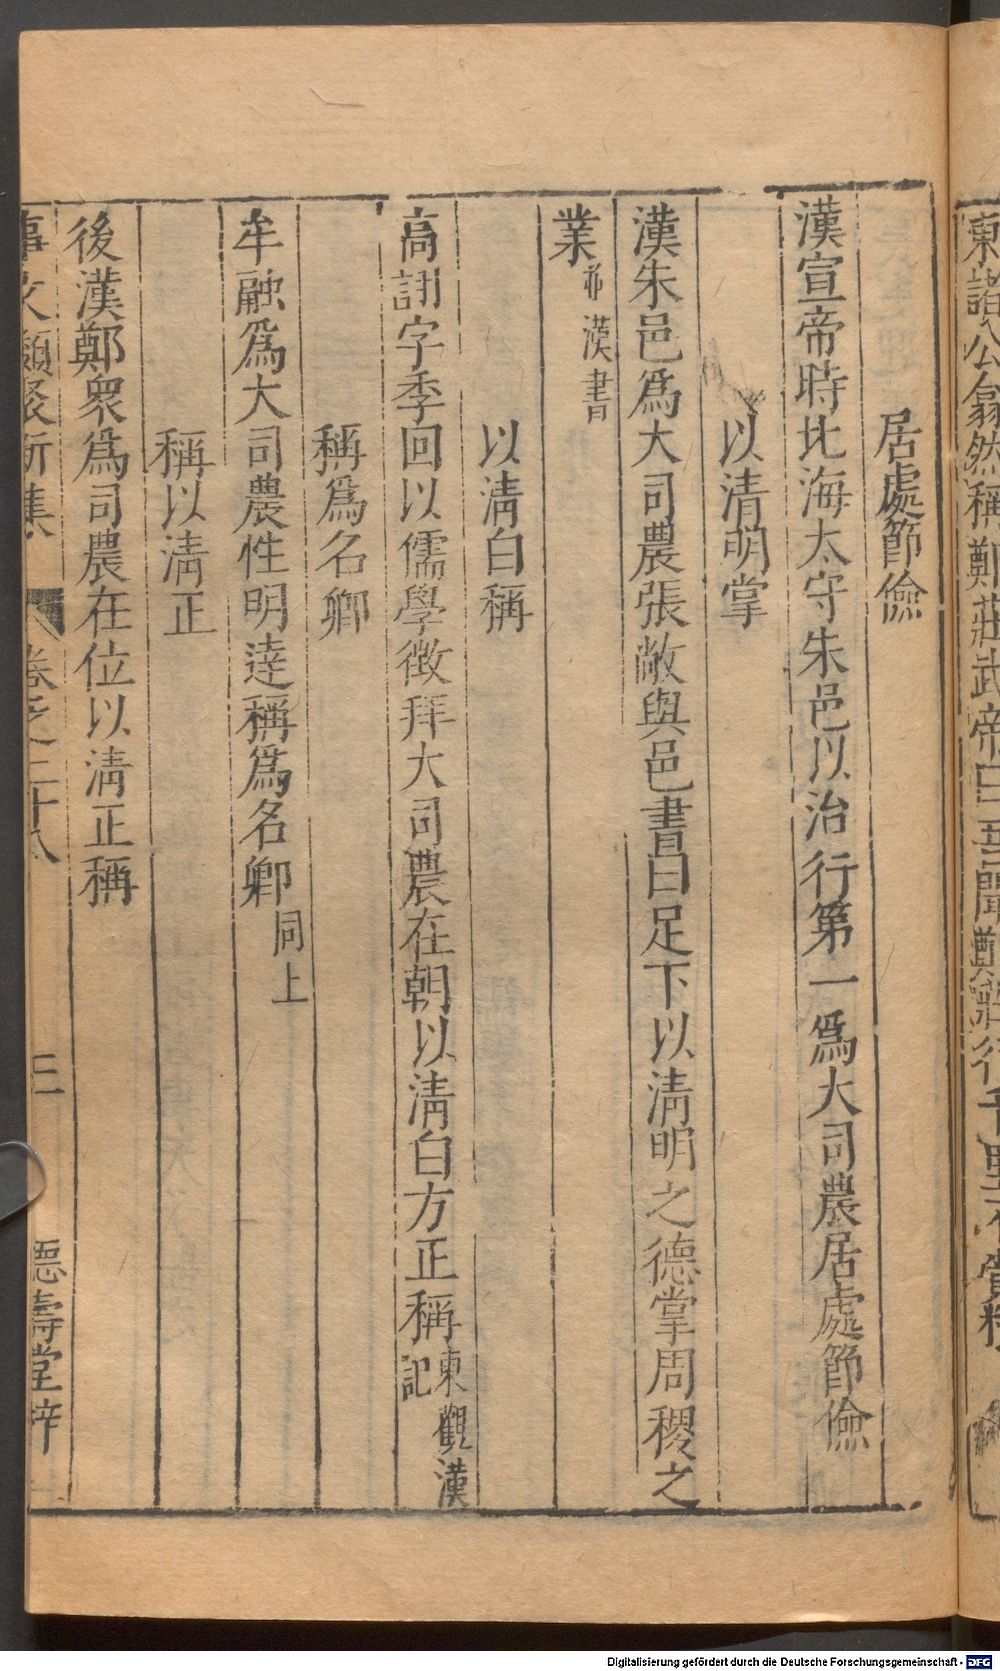 東諸公翕然稱鄭莊武帝曰吾聞鄭莊行千里不賫糧
居處節儉
漢宣帝時北海太守朱邑以治行第一爲大司農居處節儉
以清明掌
漢朱邑爲大司農張敞與邑書曰足下以淸明之德掌周稷之
業並漢書
以淸白稱
高詡字季回以儒學徴拜大司農在朝以淸白方正稱東觀漢記
稱爲名卿
牟融爲大司農性明達稱爲名卿同上
稱以淸正
後漢鄭衆爲司農在位以淸正稱
事文類聚新集 卷之二十八 三 德壽堂梓
Digitalisierung gefördert durch die Deutsche Forschungsgemeinschaft - DFG